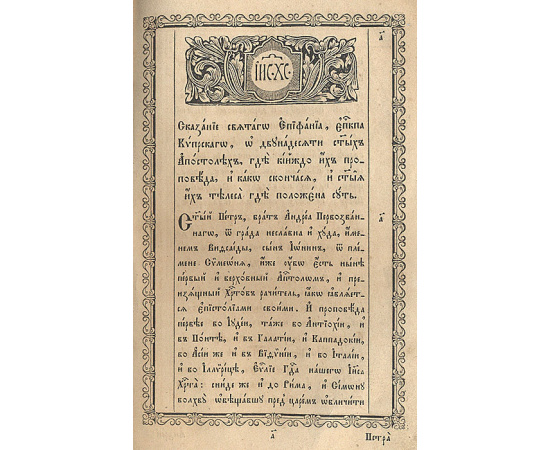 І҆И҃С ХС҃
а҃
Сказанїе свѧтагѡ Є҆пїфанїа, є҆пⷭ҇кпа
Кѵ́прскагѡ, ѡ҆ двꙋнадесѧти ст҃ыхъ
А҆постолѣхъ, гдѣ кі́йждо и҆́хъ про-
повѣда, и҆ какѡ скончасѧ, и҆ ст҃ы́ѧ
и҆́хъ тѣлеса̀ гдѣ положєна сꙋть.
Ст҃ый Пе́тръ, братъ А҆ндрї́а Первозва́н-
нагѡ, ѿ гра́да несла́вна и҆ хꙋ́да, и҆́ме-
немъ Виѳсаі́ды, сы́нъ І҆ѡ́нинъ, ѿ пле́-
мене Сѷмеѡ́нѧ, и҆́же ᲂу҆́бѡ є҆́сть ны́нѣ
пе́рвый и҆ верхо́вный А҆пⷭ҇толѡмъ, и҆ пре-
изѧ́щный Хрⷭ҇то́въ рачи́тель, ꙗ҆́кѡ ꙗ҆влѧ́ет-
сѧ є҆пїсто́лїами свои́ми. И҆ проповѣ́да
пе́рвѣе во І҆ꙋде́и, та́же во А҆нтїохі́и, и҆
въ По́нтѣ, и҆ въ Гала́тїи, и҆ Каппадокі́и,
во А҆сі́и же и҆ въ Виѳѷні́и, и҆ во І҆талі́и,
и҆ во І҆ллѷрі́цѣ, є҆ѵⷢ҇лїе Гдⷭ҇а на́шегѡ І҆и҃са
Хрⷭ҇та̀: сни́де же и҆ до Ри́ма, и҆ Сі́мѡнꙋ
волхвꙋ̀ ѡ҆вѣща́вшꙋ пред̾ царе́мъ ѡ҆бличи́ти
а҃
а҃
Петра̀